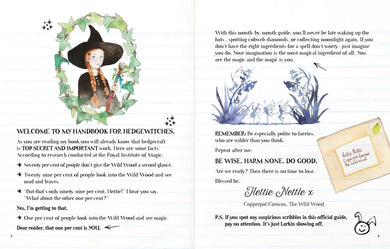 WELCOME TO MY HANDBOOK FOR HEDGEWITCHES.
As you are reading my book you will already know that hedgecraft
is TOP SECRET AND IMPORTANT work. Here are some facts.
According to research conducted at the Royal Institute of Magic:
Seventy per cent of people don't give the Wild Wood a second glance.
Twenty-nine per cent of people look into the Wild Wood and see
mud and leaves.
'But that's only ninety-nine per cent, Hettie!' I hear you say.
'What about the other one per cent?'
Yes, I'm getting to that.
One per cent of people look into the Wild Wood and see magic.
Dear reader, that one per cent is YOU.
With this month-by-month guide, you'll never be late waking up the
bats, spotting cobweb diamonds, or collecting moonlight again. If you
don't have the right ingredients for a spell don't worry – just imagine
you do. Your imagination is the most magical ingredient of all. You
are the magic and the magic is you.
REMEMBER: Be especially polite to faeries,
who are wilder than you think.
Repeat after me:
BE WISE. HARM NONE. DO GOOD.
Are you ready? Then there is no time to lose.
Blessed be,
Hettie Nettle x
Copperpot Caravan, The Wild Wood
P.S. If you spot any suspicious scribbles in this official guide,
pay no attention. It's just Larkin showing off.
Hettie Nettle
Copperpot Caravan
The Wild Wood